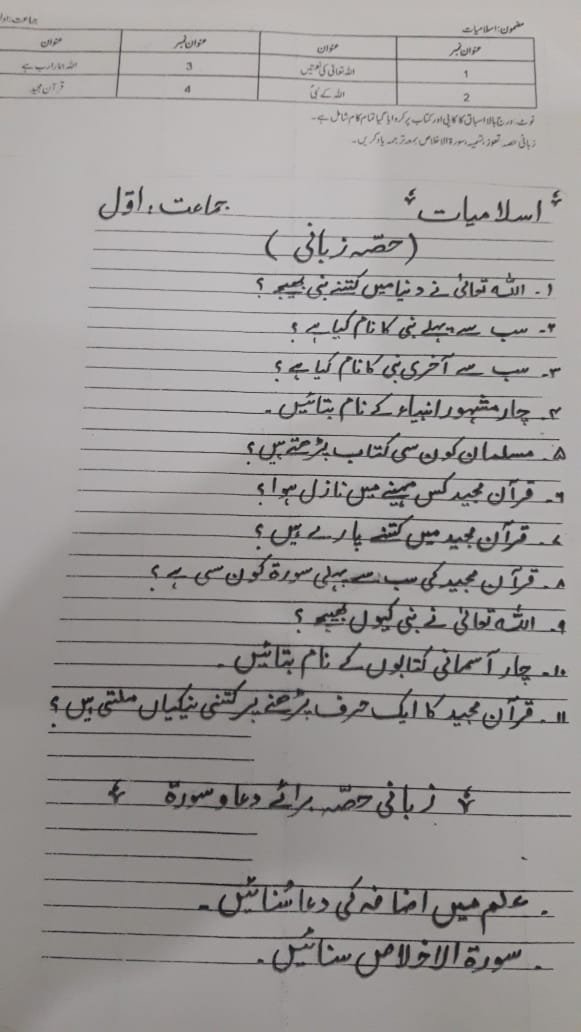 مضمون: اسلامیات جماعت: اول
عنوان نمبر عنوان عنوان نمبر عنوان
1 اللہ تعالیٰ کی نعمتیں 3 اللہ ہمارا رب ہے
2 اللہ کے نبیؑ 4 قرآن مجید
نوٹ: درج بالا اسباق کا کاپی اور کتاب پر کروایا گیا تمام کام شامل ہے۔
زبانی حصہ تعوذ، تسمیہ، سورۃ الاخلاص بمعہ ترجمہ یاد کریں۔
اسلامیات جماعت: اوّل
(حصّہ زبانی)
۱۔ اللہ تعالیٰ نے دنیا میں کتنے نبی بھیجے ؟
۲۔ سب سے پہلے نبی کا نام کیا ہے ؟
۳۔ سب سے آخری نبی کا نام کیا ہے ؟
۴۔ چار مشہور انبیاء کے نام بتائیں۔
۵۔ مسلمان کون سی کتاب پڑھتے ہیں؟
۶۔ قرآن مجید کس مہینے میں نازل ہوا ؟
۷۔ قرآن مجید میں کتنے پارے ہیں ؟
۸۔ قرآن مجید کی سب سے پہلی سورۃ کون سی ہے ؟
۹۔ اللہ تعالیٰ نے نبی کیوں بھیجے ؟
۱۰۔ چار آسمانی کتابوں کے نام بتائیں۔
۱۱۔ قرآن مجید کا ایک حرف پڑھنے پر کتنی نیکیاں ملتی ہیں ؟
زبانی حصّہ برائے دعا و سورۃ
۔ علم میں اضافہ کی دعا سُنائیں۔
۔ سورۃ الاخلاص سنائیں۔